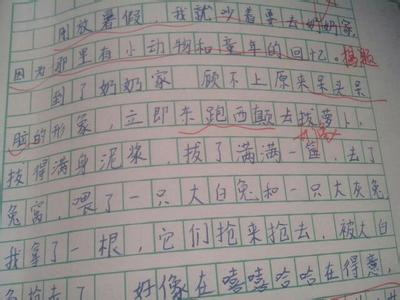 刚放暑假，我就吵着要去奶奶家
因为那里有小动物和童年的回忆。
到了奶奶家　顾不上原来呆头呆
脑的形象，立即东跑西颠去拔萝卜，
拔得满身泥浆，拔了满满一筐，去了
兔窝，喂了一只大白兔和一只大灰兔
我拿了一根，它们抢来抢去，被大白
抢去了　好像在嘻嘻哈哈在得意，